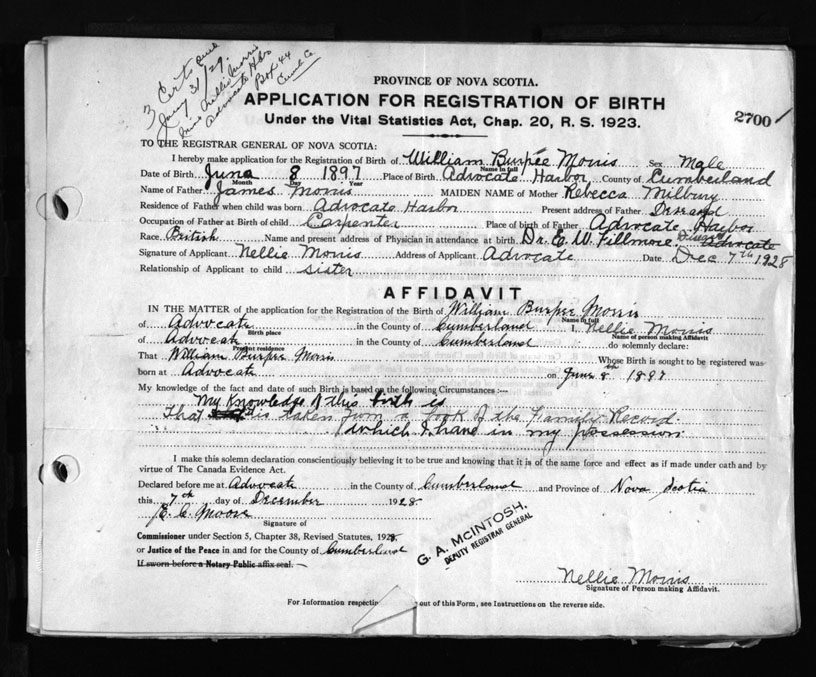 3 Certs
Jany 31/29.
Miss Nellie Morris
Advocate Hbr
Box 44
Cumb Co
PROVINCE OF NOVA SCOTIA.
APPLICATION FOR REGISTRATION OF BIRTH
2700
Under the Vital Statistics Act, Chap. 20, R. S. 1923.
TO THE REGISTRAR GENERAL OF NOVA SCOTIA:
I hereby make application for the Registration of Birth of William Burpee Morris Sex Male
Name in full
Date of Birth June 8 1897 Place of Birth Advocate Harbor County of Cumberland
Month Day Year
Name of Father James Morris MAIDEN NAME of Mother Rebecca Milbury
Residence of Father when child was born Advocate Harbor Present address of Father Deceased
Occupation of Father at Birth of child Carpenter Place of birth of Father Advocate Harbor
Race British Name and present address of Physician in attendance at birth Dr. E. W. Fillmore Deceased Advocate
Signature of Applicant Nellie Morris Address of Applicant Advocate Date Dec 7th 1928
Relationship of Applicant to child sister
AFFIDAVIT
IN THE MATTER of the application for the Registration of the Birth of William Burpee Morris
Name in full
of Advocate in the County of Cumberland I, Nellie Morris
Birth place Name of person making Affidavit
of Advocate in the County of Cumberland do solemnly declare:
Present residence
That William Burpee Morris Whose Birth is sought to be registered was
born at Advocate on June 8th 1897
My knowledge of the fact and date of such Birth is based on the following Circumstances:—
My Knowledge of this birth is
That is taken from a book of the Family Record
which I have in my possession
I make this solemn declaration conscientiously believing it to be true and knowing that it is of the same force and effect as if made under oath and by
virtue of The Canada Evidence Act.
Declared before me at Advocate in the County of Cumberland and Province of Nova Scotia
this 7th day of December 1928
E. C. Moore
Signature of
Commissioner under Section 5, Chapter 38, Revised Statutes, 1923.
or Justice of the Peace in and for the County of Cumberland
If sworn before a Notary Public affix seal.
G. A. McINTOSH,
DEPUTY REGISTRAR GENERAL
Nellie Morris
Signature of Person making Affidavit.
For Information respecting out of this Form, see Instructions on the reverse side.